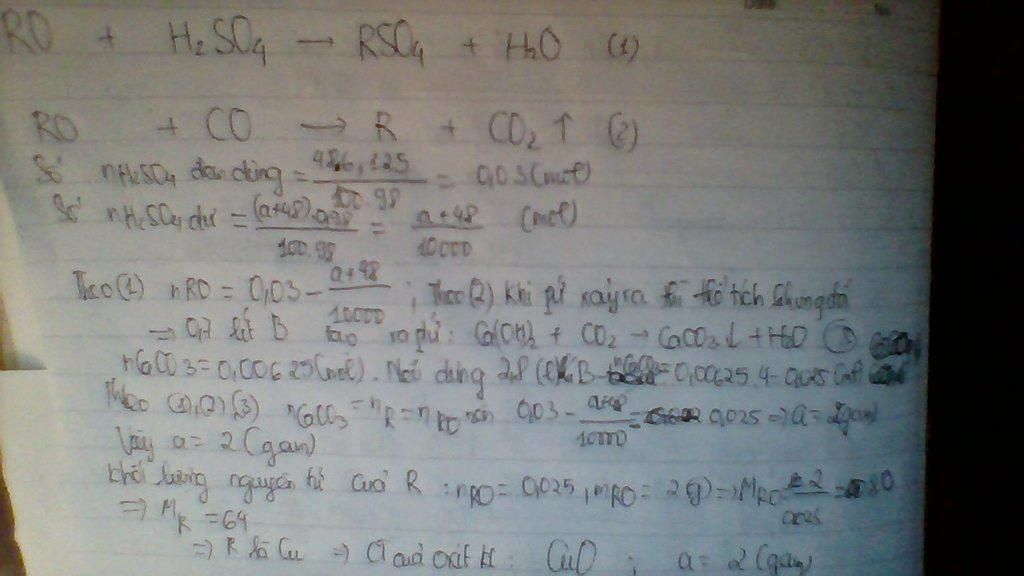 RO + H2SO4 → RSO4 + H2O (1)
RO + CO → R + CO2 ↑ (2)
Số nH2SO4 đem dùng = 48.6,125 / 100.98 = 0,03 (mol)
Số nH2SO4 dư = (a+48).0,98 / 100.98 = a+48 / 10000 (mol)
Theo (1) nRO = 0,03 - a+48 / 10000 ; Theo (2) khi pứ xảy ra thì thể tích không đổi
⇒ 0,7 lít B tạo ra pứ: Ca(OH)2 + CO2 → CaCO3↓ + H2O (3)
nCaCO3 = 0,00625 (mol). Nếu dùng 2,8 lít B = 0,00625.4 = 0,025 (mol)
Theo (1),(2),(3) nCaCO3 = nR = nRO nên 0,03 - a+48 / 10000 = 0,025 ⇒ a = 2 (gam)
Vậy a = 2 (gam)
Khối lượng nguyên tử của R : nRO = 0,025, mRO = 2(g) ⇒ MRO = 2 / 0,025 = 80
⇒ MR = 64
⇒ R là Cu ⇒ CT của oxit KL : CuO ; a = 2 (gam)